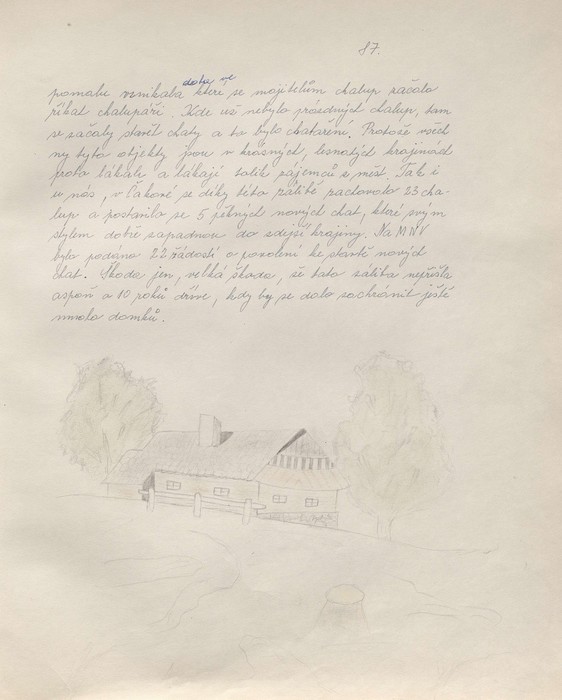 87.
doba ve
pomalu vznikala které se majitelům chalup začalo
říkat chalupáři. Kde už nebylo prázdných chalup, tam
se začaly stavět chaty a to bylo chataření. Protože všech
ny tyto objekty jsou v krásných, lesnatých krajinách
proto lákali a lákají tolik zájemců z měst. Tak i
u nás, v Čakové se díky této zálibě zachovalo 23 cha-
lup a postavilo se 5 pěkných nových chat, které svým
stylem dobře zapadnou do zdejší krajiny. Na MNV
bylo podáno 22 žádostí o povolení ke stavbě nových
chat. Škoda jen, velká škoda, že tato záliba nepřišla
aspoň o 10 roků dříve, kdy by se dalo zachránit ještě
mnoho domků.